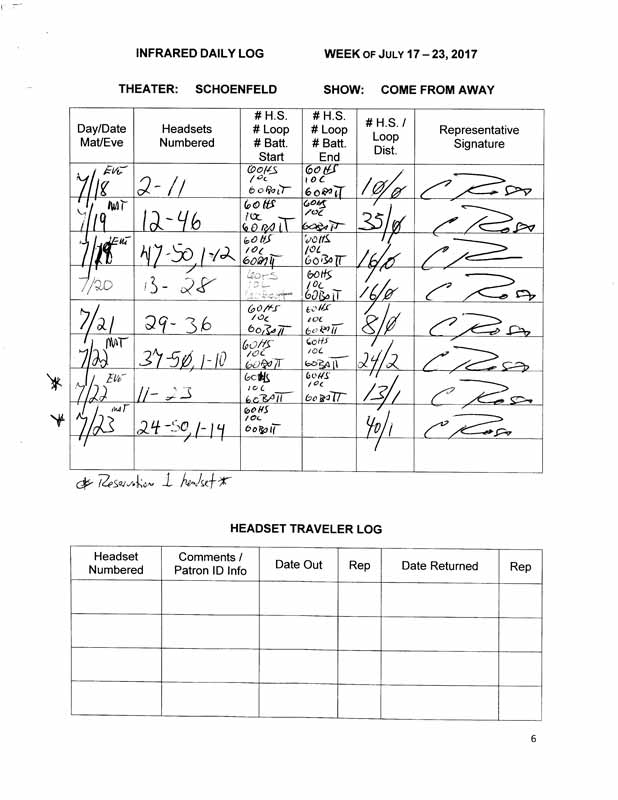 INFRARED DAILY LOG WEEK OF JULY 17 – 23, 2017
THEATER: SCHOENFELD SHOW: COME FROM AWAY
Day/Date Mat/Eve Headsets Numbered # H.S. # Loop # Batt. Start # H.S. # Loop # Batt. End # H.S. / Loop Dist. Representative Signature
7/18 EVE 2-11 60HS 10L 60BATT 60HS 10L 60BATT 10/0 C Ross
7/19 MAT 12-46 60HS 10L 60BATT 60HS 10L 60BATT 35/0 C Ross
EVE 47-50, 1-12 60HS 10L 60BATT 60HS 10L 60BATT 16/0 C R
7/20 13-28 60HS 10L 60BATT 16/0 C Ross
7/21 29-36 60HS 10L 60BATT 60HS 10L 60BATT 8/0 C Ross
7/22 MAT 37-50, 1-10 60HS 10L 60BATT 60HS 10L 60BATT 24/2 C Ross
* 7/22 EVE 11-23 60HS 10L 60BATT 60HS 10L 60BATT 13/1 C Ross
* 7/23 MAT 24-50, 1-14 60HS 10L 60BATT 40/1 C Ross
* Reservation 1 headset *
HEADSET TRAVELER LOG
Headset Numbered Comments / Patron ID Info Date Out Rep Date Returned Rep
6